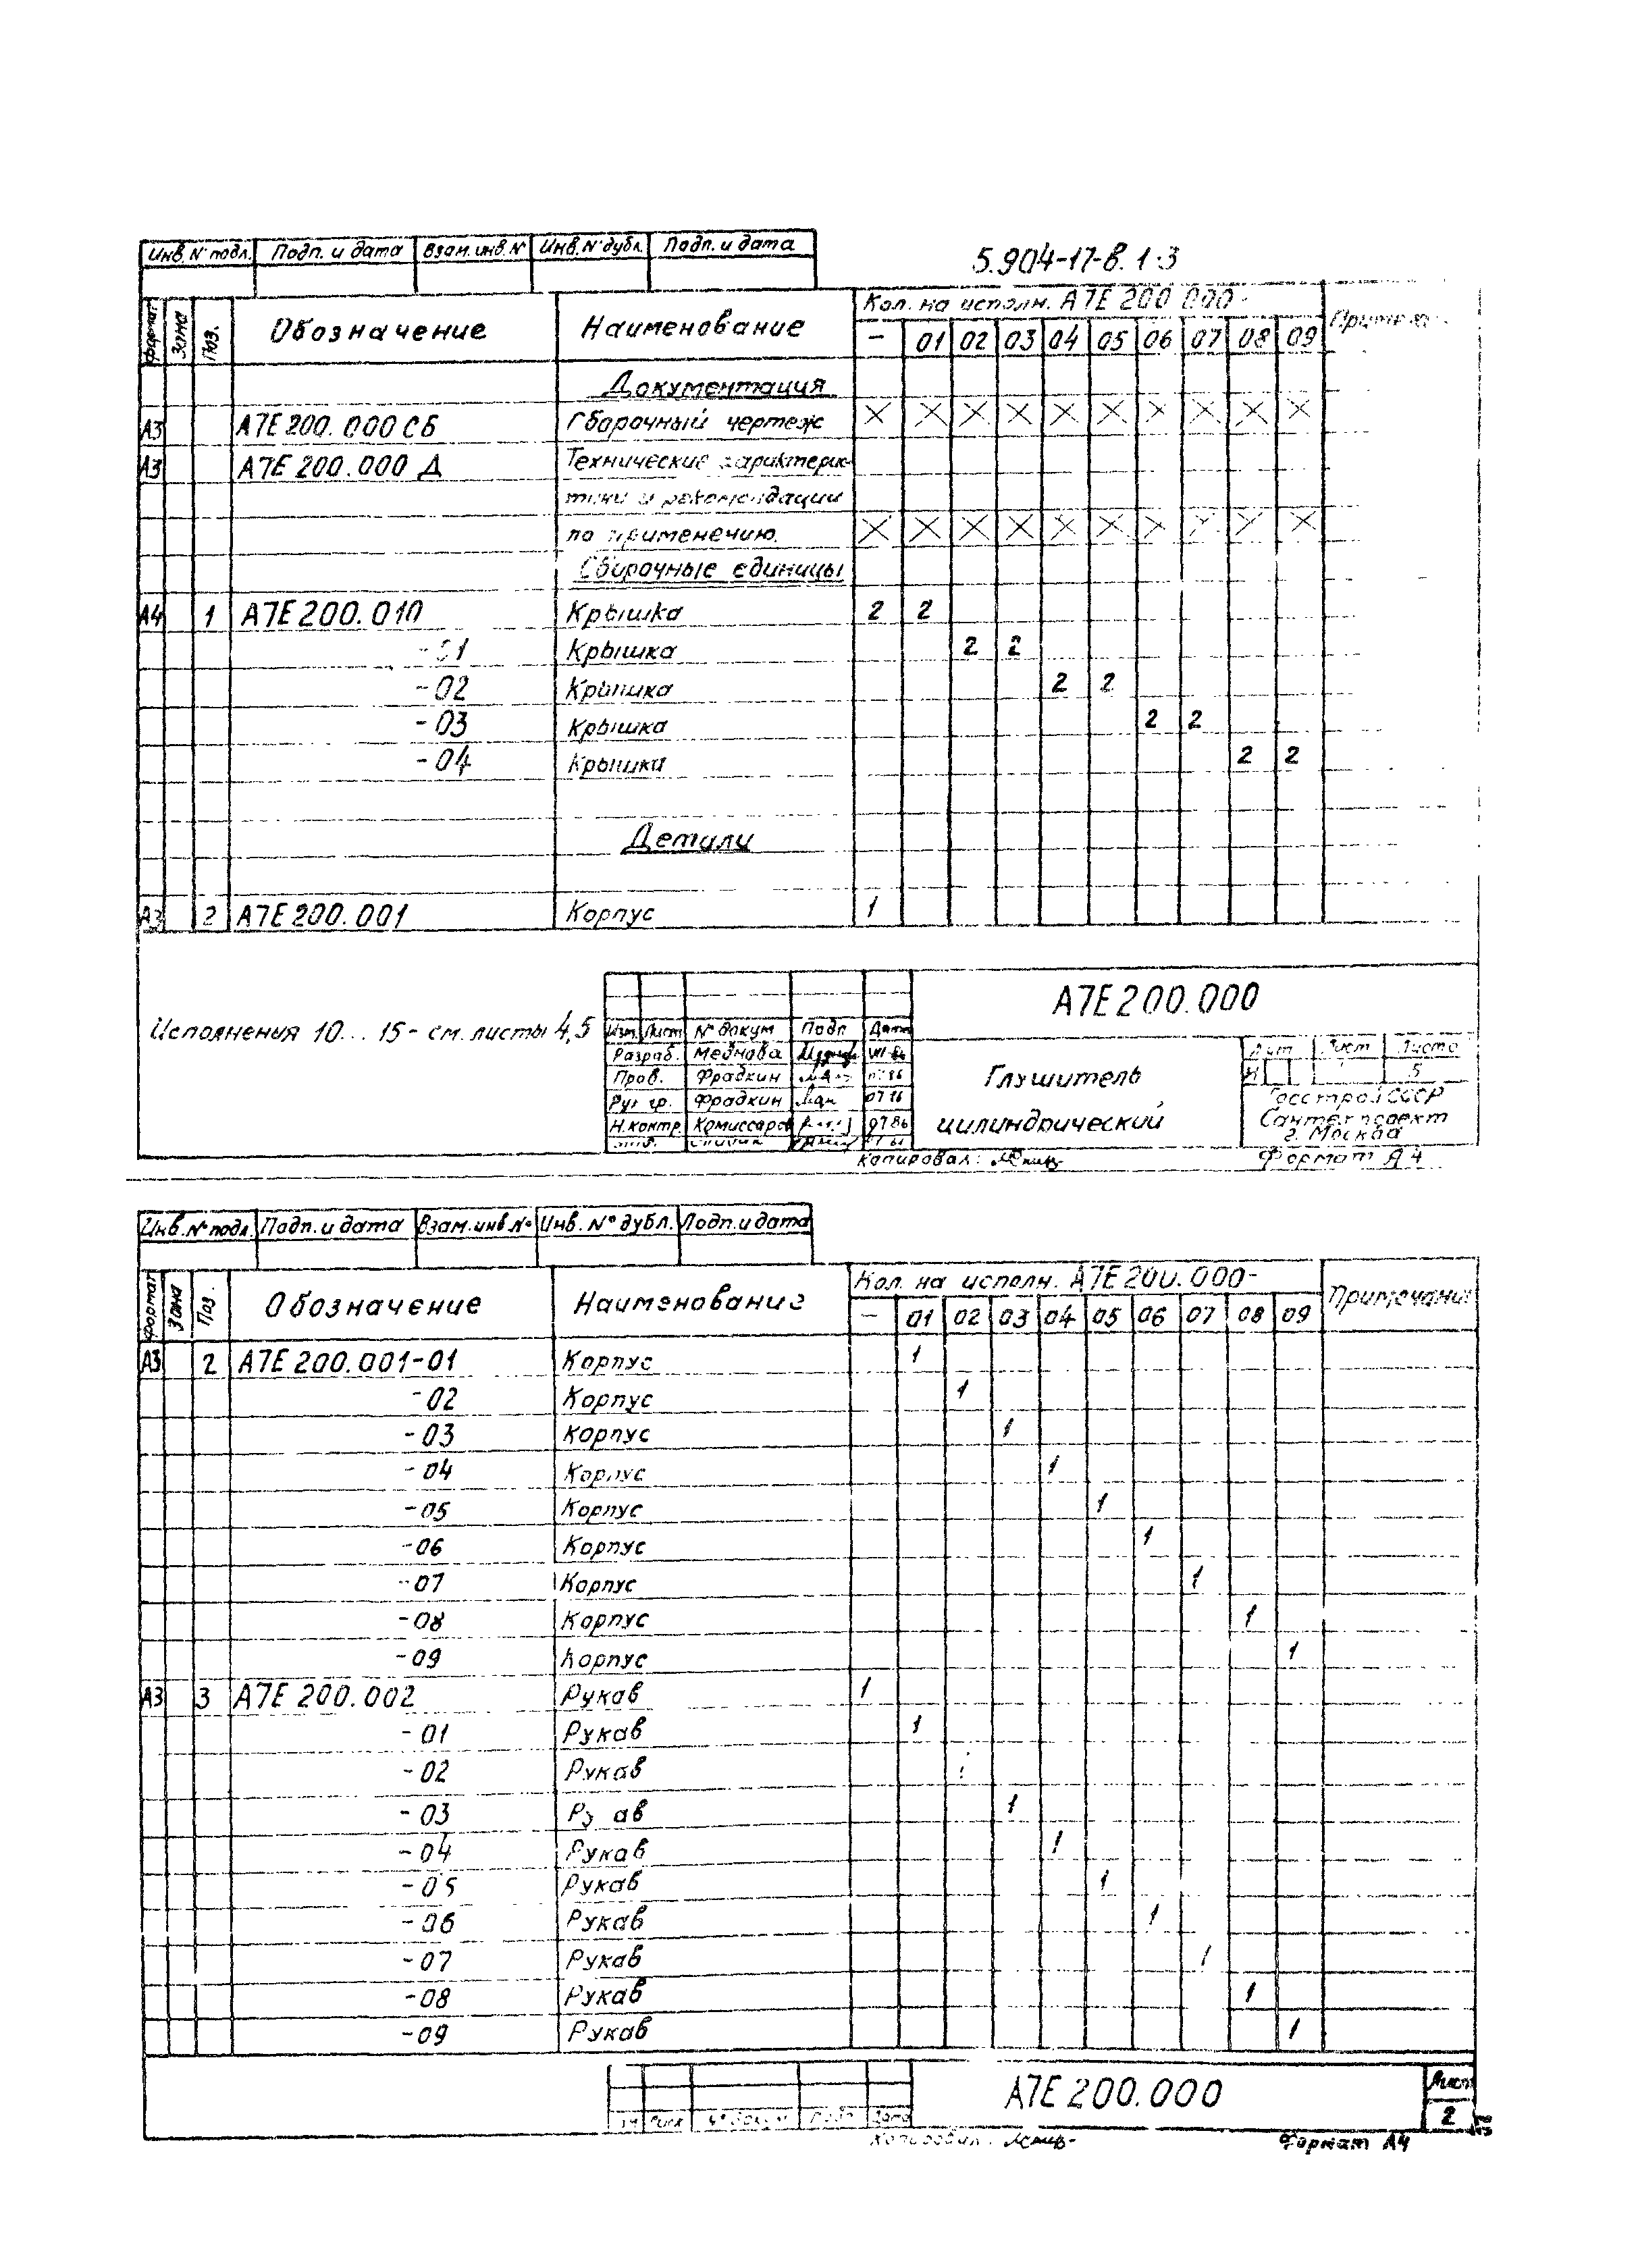 Инв. № подл. Подп. и дата Взам. инв. № Инв. № дубл. Подп. и дата
5.904-17-в. 1-3
Формат Зона Поз. Обозначение Наименование Кол. на исполн. А7Е 200.000-
– 01 02 03 04 05 06 07 08 09
Документация
А3 А7Е 200.000 СБ Сборочный чертеж X X X X X X X X X X
А3 А7Е 200.000 Д Технические характерис-
тики и рекомендации
по применению. X X X X X X X X X X
Сборочные единицы
А4 1 А7Е 200.010 Крышка 2 2
-01 Крышка 2 2
-02 Крышка 2 2
-03 Крышка 2 2
-04 Крышка 2 2
Детали
А3 2 А7Е 200.001 Корпус 1
Исполнения 10... 15 - см. листы 4,5
А7Е 200.000
Изм. Лист № докум Подп Дата
Разраб. Меднова
Пров. Фрадкин
Рук. гр. Фрадкин
Н.контр. Комиссаров 0786
Глушитель
цилиндрический
Лит Лист Листо
5
Госстрой СССР
Сантехпроект
г. Москва
Копировал:
Формат А4
Инв. № подл. Подп. и дата Взам. инв № Инв. № дубл. Подп. и дата
Формат Зона Поз. Обозначение Наименование Кол. на исполн. А7Е 200.000- Примечание
– 01 02 03 04 05 06 07 08 09
А3 2 А7Е 200.001-01 Корпус 1
-02 Корпус 1
-03 Корпус 1
-04 Корпус 1
-05 Корпус 1
-06 Корпус 1
-07 Корпус 1
-08 Корпус 1
-09 Корпус 1
А3 3 А7Е 200.002 Рукав 1
-01 Рукав 1
-02 Рукав
-03 Рукав 1
-04 Рукав 1
-05 Рукав 1
-06 Рукав 1
-07 Рукав 1
-08 Рукав 1
-09 Рукав 1
А7Е 200.000
Лист
2
Лист № докум Подп Дата
Копировал:
Формат А4